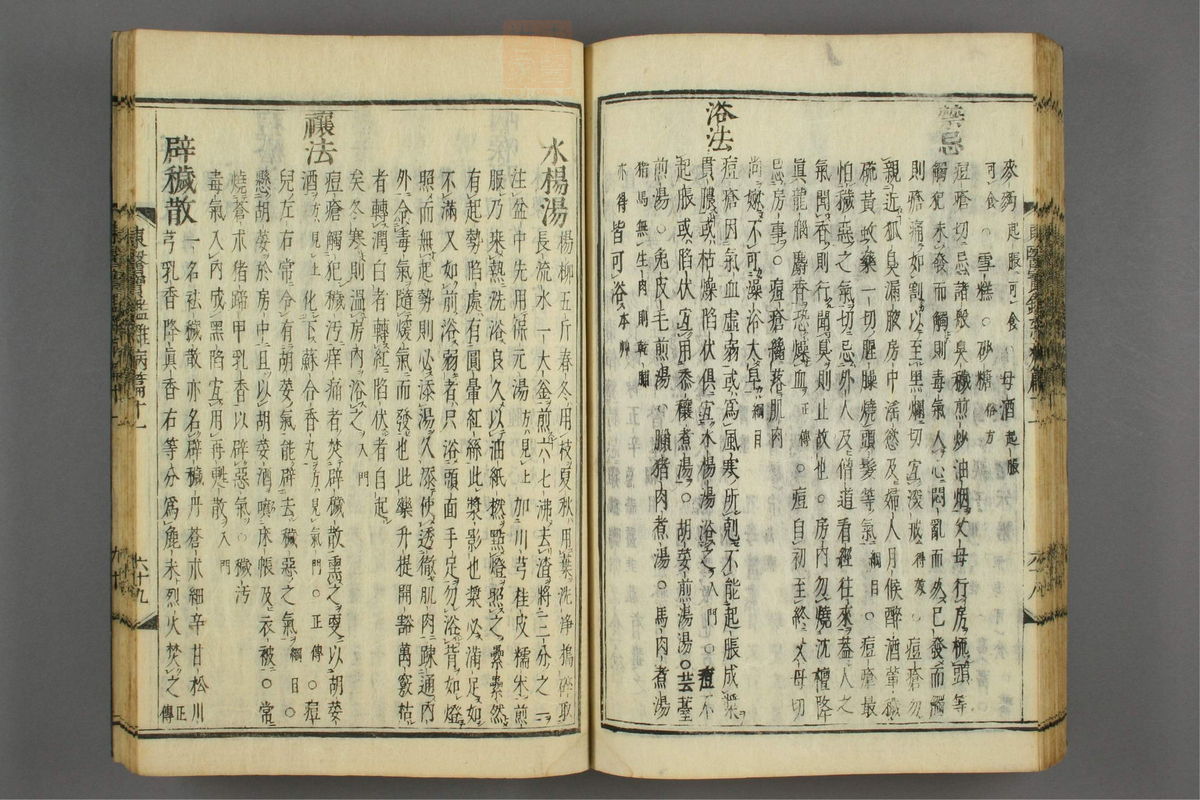 麥麪起脹可食○母酒起脹
可食○雪糕○砂糖俗方
禁忌
痘瘡切忌諸般臭穢煎炒油烟父母行房梳頭等
觸犯未發而觸則毒氣入心悶亂而死已發而觸
則瘡痛如割以至黑爛切宜深戒得效○痘瘡勿
親近狐臭漏腋房中淫慾及婦人月候醉酒葷穢
硫黃蚊藥一切腥臊燒頭髮等氣綱目○痘瘡最
怕穢惡之氣切忌外人及僧道看經往來蓋人之
氣聞香則行聞臭則止故也○房內勿燒沈檀降
眞龍腦麝香恐燥血正傳○痘自初至終父母切
忌房事○痘瘡落肌肉
尚嫩不可澡浴太早綱目
浴法
痘瘡因氣血虛弱或爲風寒所剋不能起脹成漿
貫膿或枯燥陷伏俱宜水楊湯浴之入門○痘不
起脹或陷伏宜用黍穰煮湯○胡荽煎湯○芸薹
煎湯○兔皮毛煎湯○臘猪肉煮湯○馬肉煮湯
猪馬無生肉則乾腊
亦得皆可浴本艸
水楊湯
楊柳五斤春冬用枝夏秋用葉洗淨搗碎取
長流水一大釜煎六七沸去渣將三分之一
注盆中先用保元湯方見上加川芎桂皮糯米煎
服乃來熱洗浴良久以油紙撚點燈照之纍纍然
有起勢陷處有圓暈紅絲此漿影也漿必滿足如
不滿又如前浴弱者只浴頭面手足勿浴背如燈
照而無起勢則必添湯久浴使透徹肌肉疎通內
外令毒氣隨煖氣而發也此藥升提開豁萬竅枯
者轉潤白者轉紅陷伏者自起
矣冬寒則溫房浴之入門
禳法
痘瘡觸犯穢污痒痛者焚辟穢散熏之更以胡荽
酒方見上化下蘇合香丸方見氣門○正傳○痘
兒左右常令有胡荽氣能辟去穢惡之氣綱目○
懸胡荽於房中且以胡荽酒噴床帳及衣被○常
燒蒼朮猪蹄甲乳香以辟惡氣○穢污
毒氣入內成黑陷宜用再甦散入門
辟穢散
一名祛穢散亦名辟穢丹蒼朮細辛甘松川
芎乳香降眞香右等分爲麁末烈火焚之正傳
東醫寶鑑雜病篇十一
六十九